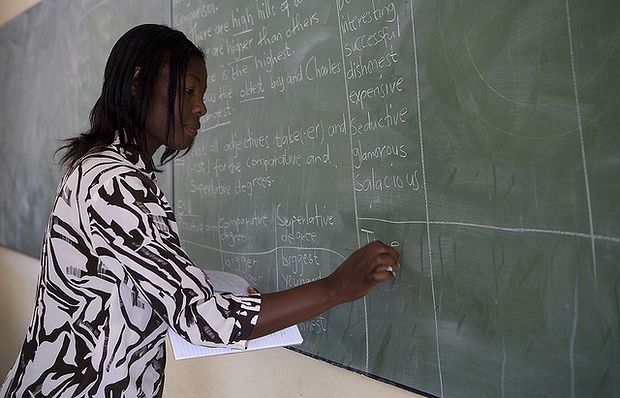 omparison.
here are high hills
are higher than others
e is the highest.
as the oldest boy and Charles
Not all adjectives take (-er) and
(-est) for the comparative and
Superlative degrees.
Comparative
degree
Superlative
degree
bigger
biggest
youngest
interesting
successful
dishonest
expensive
Seductive
glamorous
Salacious